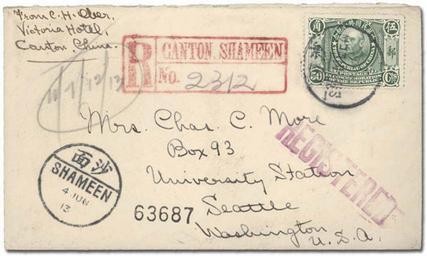 From C. H. Ober,
Victoria Hotel,
Canton China.
R CANTON SHAMEEN
No. 2312
50
Mrs. Chas. C. More
Box 93
University Station
Seattle
Washington
U.S.A.
REGISTERED
面沙
SHAMEEN
4 JUN
13
63687